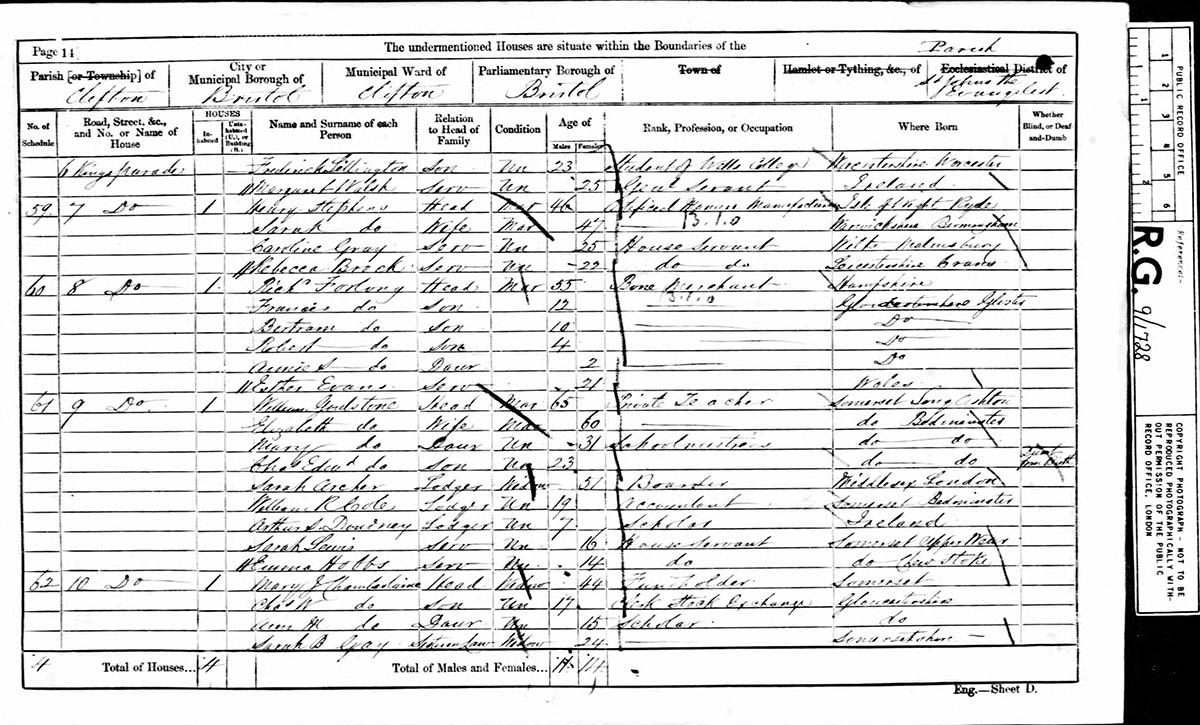 Page 14
The undermentioned Houses are situate within the Boundaries of the
Parish [or Township] of
Clifton
City or Municipal Borough of
Bristol
Municipal Ward of
Clifton
Parliamentary Borough of
Bristol
Town of
Hamlet or Tything, &c., of
Parish
Ecclesiastical District of
St John the Evangelist
No. of Schedule
Road, Street, &c., and No. or Name of House
HOUSES
Inhabited
Uninhabited (U.), or Building (B.)
Name and Surname of each Person
Relation to Head of Family
Condition
Age of
Males
Females
Rank, Profession, or Occupation
Where Born
Whether Blind, or Deaf-and-Dumb
6 Kings Parade Frederick Son Un 23 Student of Wells College Worcestershire Worcester
Margaret Welsh Serv Un 25 Genl Servant Ireland
59 7 Do 1 Henry Stephens Head Mar 46 Artificial Manure Manufacturer Isle of Wight Ryde
Sarah do Wife Mar 47 Warwickshire Birmingham
Caroline Gray Serv Un 25 House Servant Wilts Malmsbury
Rebecca Brock Serv Un 22 do do Leicestershire
60 8 Do 1 Richd Head Mar 55 Bone Merchant Hampshire
Francis do Son 12 Gloucestershire
Bertram do Son 10 Do
Robert do Son 4 Do
Annie S do Daur 2 Do
Esther Evans Serv 21 Wales
61 9 Do 1 William Head Mar 65 Private Teacher Somerset Long Ashton
Elizabeth do Wife Mar 60 do Bedminster
Mary do Daur Un 31 Schoolmistress do do
Chas Edwd do Son Un 23 do do Dumb from Birth
Sarah Archer Lodger Widow 51 Boarder Middlesex London
William R Cole Lodger Un 19 Accountant Somerset Bedminster
Arthur S Lodger Un 7 Scholar Ireland
Sarah Lewis Serv Un 16 House Servant Somerset Upper Wear
Emma Hobbs Serv Un 14 do do Chew Stoke
62 10 Do 1 Mary J Chamberlaine Head 44 Fundholder Somerset
Chas W do Son Un 17 Clerk Stock Exchange Gloucestershire
Ann M do Daur Un 15 Scholar do
Sarah B Gay Sister in Law Widow 24 Somersetshire
4 Total of Houses... 4
Total of Males and Females... 11 14
Eng.—Sheet D.
PUBLIC RECORD OFFICE
1 2 3 4 5 6
1 2
Reference:-
R.G. 9/1728
COPYRIGHT PHOTOGRAPH - NOT TO BE REPRODUCED PHOTOGRAPHICALLY WITHOUT PERMISSION OF THE PUBLIC RECORD OFFICE, LONDON